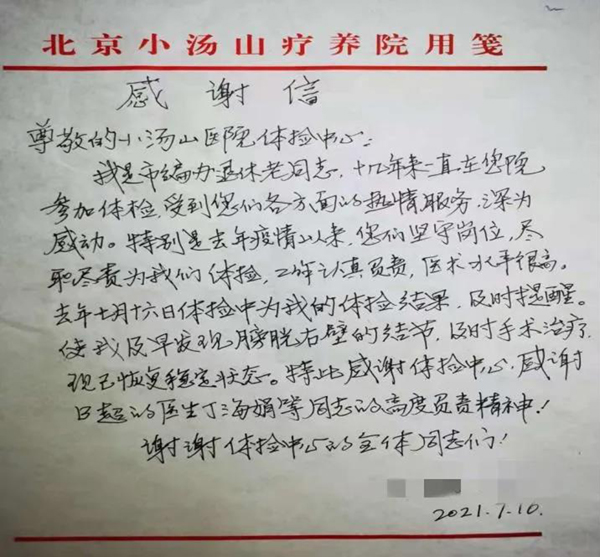 北京小汤山疗养院用笺
感谢信
尊敬的小汤山医院体检中心:
我是市编办退休老同志,十几年来一直在您院
参加体检,受到您们各方面的热情服务,深为
感动。特别是去年疫情以来,您们坚守岗位,尽
职尽责为我们体检,工作认真负责,医术水平很高。
去年七月十六日体检中为我的体检结果,及时提醒。
使我及早发现膀胱右壁的结节,及时手术治疗.
现已恢复稳定状态。特此感谢体检中心,感谢
B超的医生丁海娟等同志的高度负责精神!
谢谢体检中心的全体同志们!
2021.7.10.